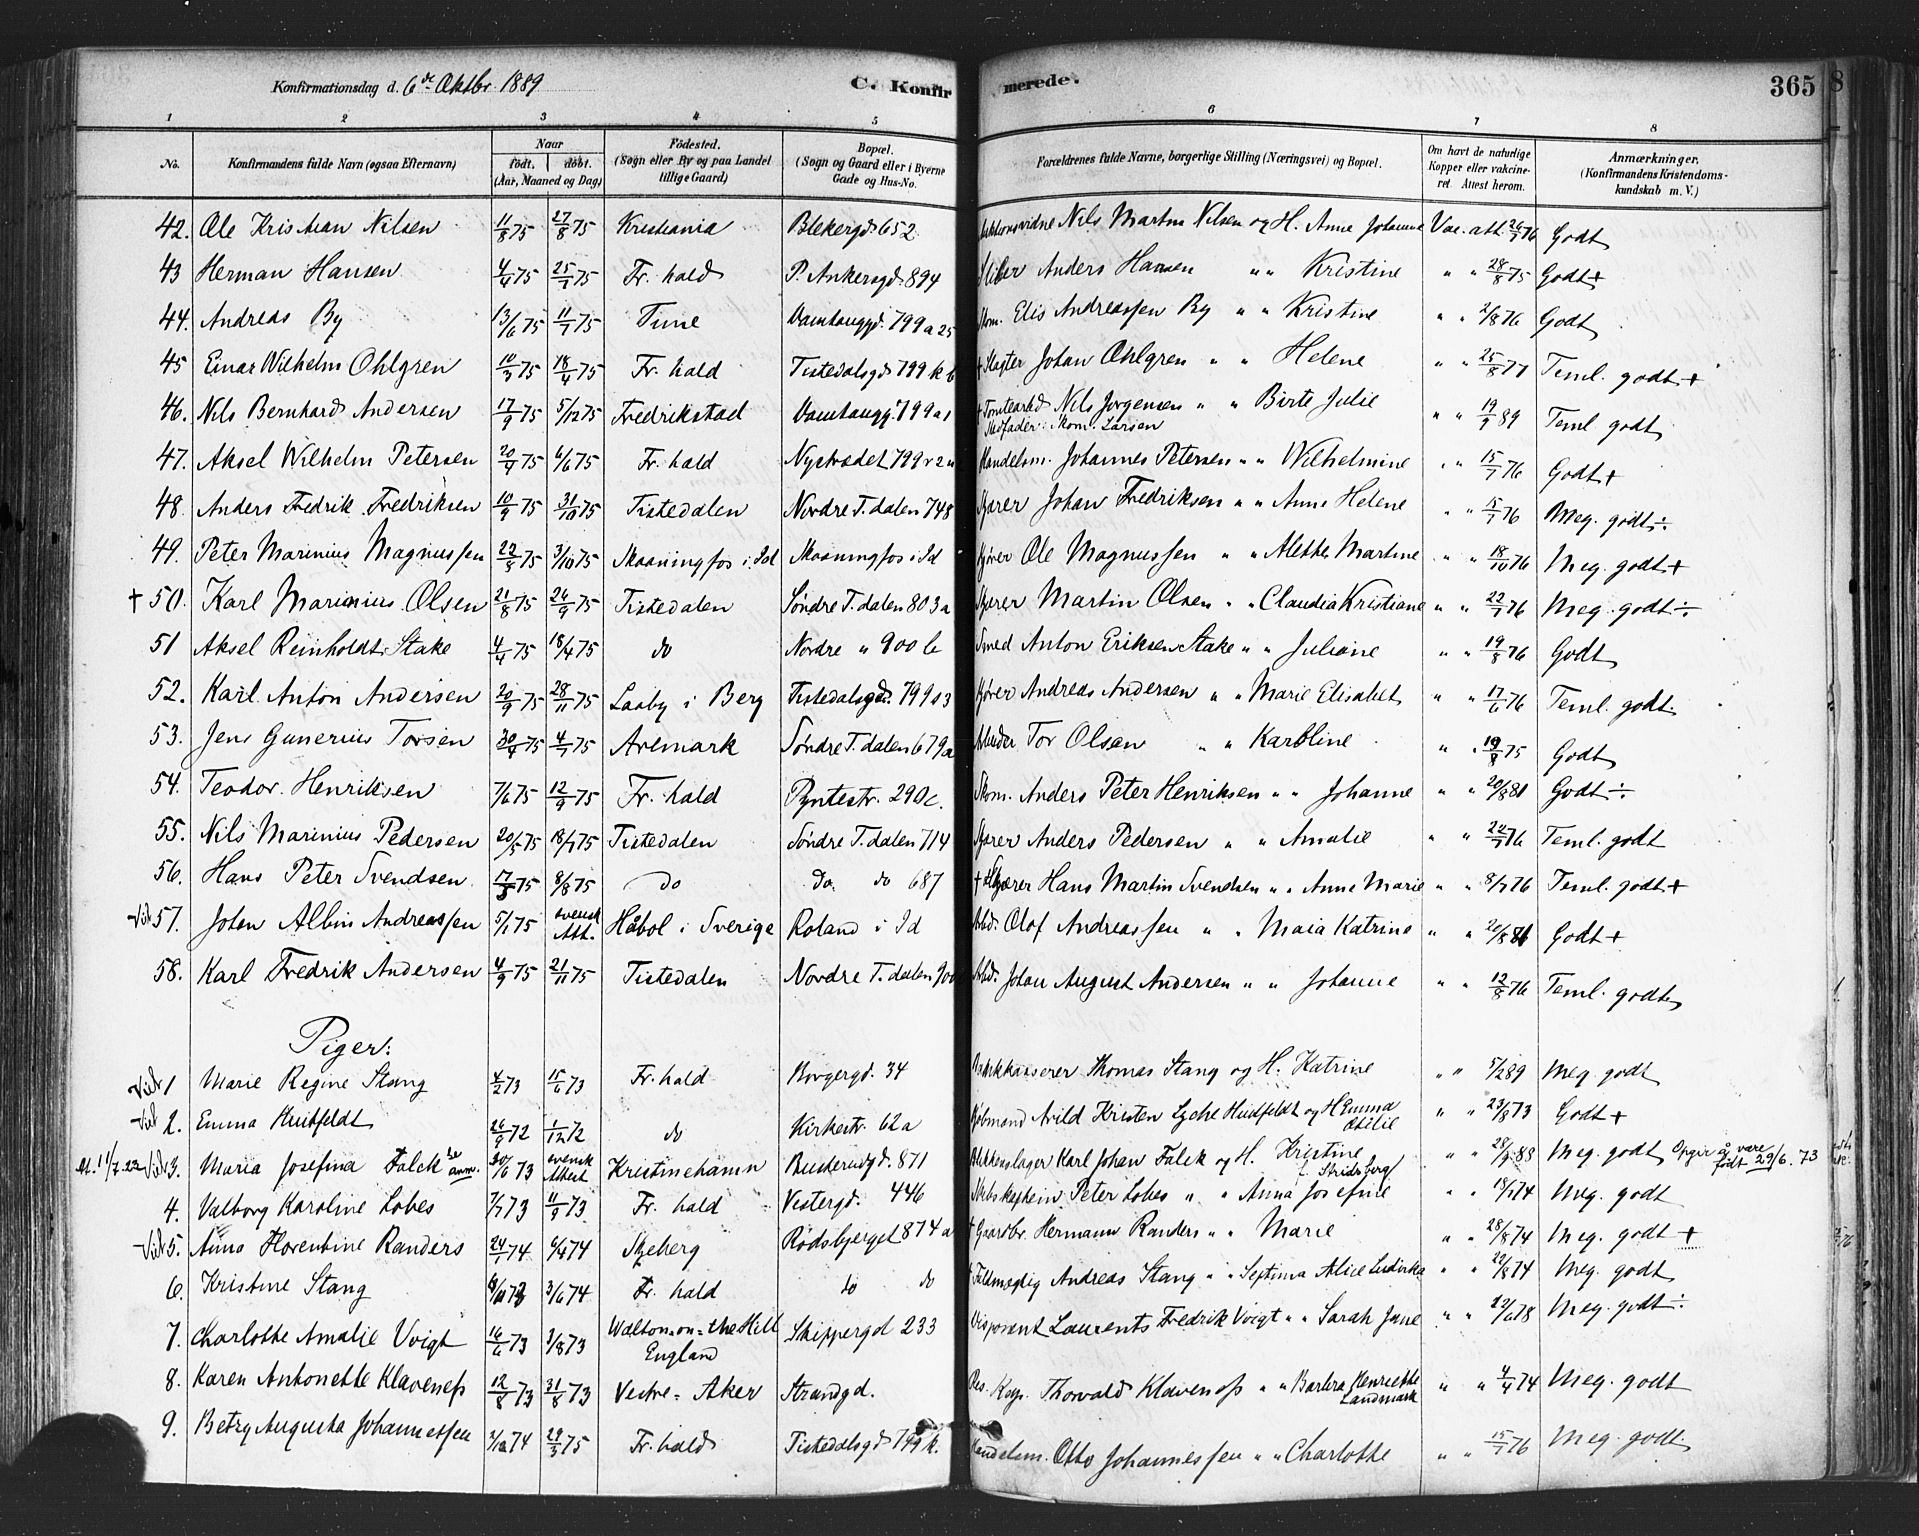 Konfirmationsdag d. 6de Oktbr 1889 C. Konfirmerede. 365
1 2 3 4 5 6 7 8
No. Konfirmandens fulde Navn (ogsaa Efternavn) Naar født. døbt. (Aar, Maaned og Dag) Fødested. (Sogn eller By og paa Landet tillige Gaard) Bopæl. (Sogn og Gaard eller i Byerne Gade og Hus-No. Forældrenes fulde Navne, borgerlige Stilling (Næringsvei) og Bopæl. Om havt de naturlige Kopper eller vakcineret. Attest herom. Anmærkninger. (Konfirmandens Kristendomskundskab m. V.)
42. Ole Kristian Nilsen 11/8 75 27/8 75 Kristiania Blekergd. 652 Nils Martin Nilsen og H. Anne Johanne Vac. att. 26/7 76 Godt
43 Herman Hansen 4/4 75 25/7 75 Fr. hald P. Ankersgd. 894 Anders Hansen " " Kristine " " 28/8 75 Godt +
44. Andreas By 13/6 75 11/7 75 Tune 799 a 25 Skom. Elis Andreassen By " " Kristine " " 2/8 76 Godt
45 Einar Wilhelm Ohlgren 10/3 75 18/4 75 Fr. hald Tistedalsgd 799 k 6 + Slagter Johan Ohlgren " " Helene " " 25/8 77 Teml. godt +
46. Nils Bernhard Andersen 17/9 75 5/12 75 Fredrikstad 799 a 1 + Tomtearbd Nils Jørgensen " " Birte Julie " " 19/9 89 Teml godt
Stedfader: Skom. Larsen
47. Aksel Wilhelm Petersen 20/4 75 6/6 75 Fr. hald Nystrædet 799 r 2 Handelsm. Johannes Petersen " " Wilhelmine " " 15/7 76 Godt +
48. Anders Fredrik Fredriksen 10/9 75 31/10 75 Tistedalen Nordre T. dalen 748 Johan Fredriksen " " Anne Helene " " 5/7 76 Meg. godt ÷
49. Peter Marinius Magnussen 22/8 75 3/10 75 Skaaningfos i Id Skaaningfos i Id Ole Magnussen " " Alethe Martine " " 18/10 76 Meg. godt +
+ 50. Karl Marinius Olsen 21/8 75 26/9 75 Tistedalen Søndre T. dalen 803 a Martin Olsen " " Claudia Kristiane " " 22/7 76 Meg. godt ÷
51 Aksel Reinholdt Stake 4/4 75 18/4 75 do Nordre " 900 b Smed Anton Eriksen Stake " " Juliane " " 19/8 76 Godt
52. Karl Anton Andersen 20/9 75 28/11 75 Laaby i Berg Tistedalsgd. 799 a 3 Andreas Andersen " " Marie Elisabet " " 17/6 76 Teml. godt.
53. Jens Gunerius Torsen 30/4 75 4/7 75 Aremark Søndre T. dalen 679 a Tor Olsen " " Karoline " " 19/8 75 Godt
54. Teodor Henriksen 7/6 75 12/9 75 Fr. hald Pyntestr. 290 c. Skom. Anders Peter Henriksen " " Johanne " " 20/8 81 Godt ÷
55. Nils Marinius Pedersen 20/5 75 18/7 75 Tistedalen Søndre T. dalen 714 Anders Pedersen " " Amalie " " 22/7 76 Teml. godt
56. Hans Peter Svendsen 17/3 75 8/8 75 do do. do 687 + Hans Martin Svendsen " " Anne Marie " " 8/7 76 Teml. godt +
Vidr 57. Johan Albin Andreassen 5/1 75 svensk Att. Håbol i Sverige Roland i Id Arbd. Olof Andreassen " " Maia Katrine " " 20/8 86 Godt +
58. Karl Fredrik Andersen 4/9 75 21/11 75 Tistedalen Nordre T. dalen 900 Arbd. Johan August Andersen " " Johanne " " 12/8 76 Teml. godt
Piger:
Vidr 1 Marie Regine Stang 4/2 73 15/6 73 Fr. hald Borgergd. 34 Thomas Stang og H. Katrine " " 5/2 89 Meg. godt
Vidr 2. Emma Huitfeldt 26/9 72 1/12 72 do Kirkestr. 62 a Kjøbmand Arild Kristen Lyche Huitfeldt og H Emma Otilie " " 23/8 73 Godt +
att. 11/7.22 Vidr 3. Maria Josefina Falck se anm. 30/6 73 svensk Attest Kristinehamn 871 Blikkenslager Karl Johan Falck og H. Kristine f. Skidsberg " " 28/9 88 Meg. godt Opgir å være født 29/6. 73
4. Valborg Karoline Lobes 7/7 73 11/9 73 Fr. hald Vestergd. 446 Skibskaptein Peter Lobes " " Anna Josefine " " 18/7 74 Meg. godt
Vidr 5. Anna Florentine Randers 24/1 74 6/4 74 Skjeberg Rødsbjerget 874 a + Gaardbr. Hermann Randers " " Marie " " 28/8 74 Meg. godt +
6. Kristine Stang 73 3/6 74 Fr. hald do do Andreas Stang " " Septima Alice Ludvika " " 22/8 74 Meg. godt
7. Charlotte Amalie Voigt 16/6 73 3/8 73 Walton-on-the Hill England Skippergd 233 Laurents Fredrik Voigt " " Sarah Jane " " 22/6 78 Meg. godt ÷
8. Karen Antonette Klaveness 12/8 73 31/8 73 Vestre-Aker Strandgd. Res. Kap. Thorvald Klaveness " " Barbra Henriette Landmark " " 4/4 74 Meg. godt
9. Betzy Augusta Johannessen 2/12 74 29/3 75 Fr. hald Tistedalsgd 799 k. Handelsm. Otto Johannessen " " Charlotte " " 15/7 76 Meg. godt.